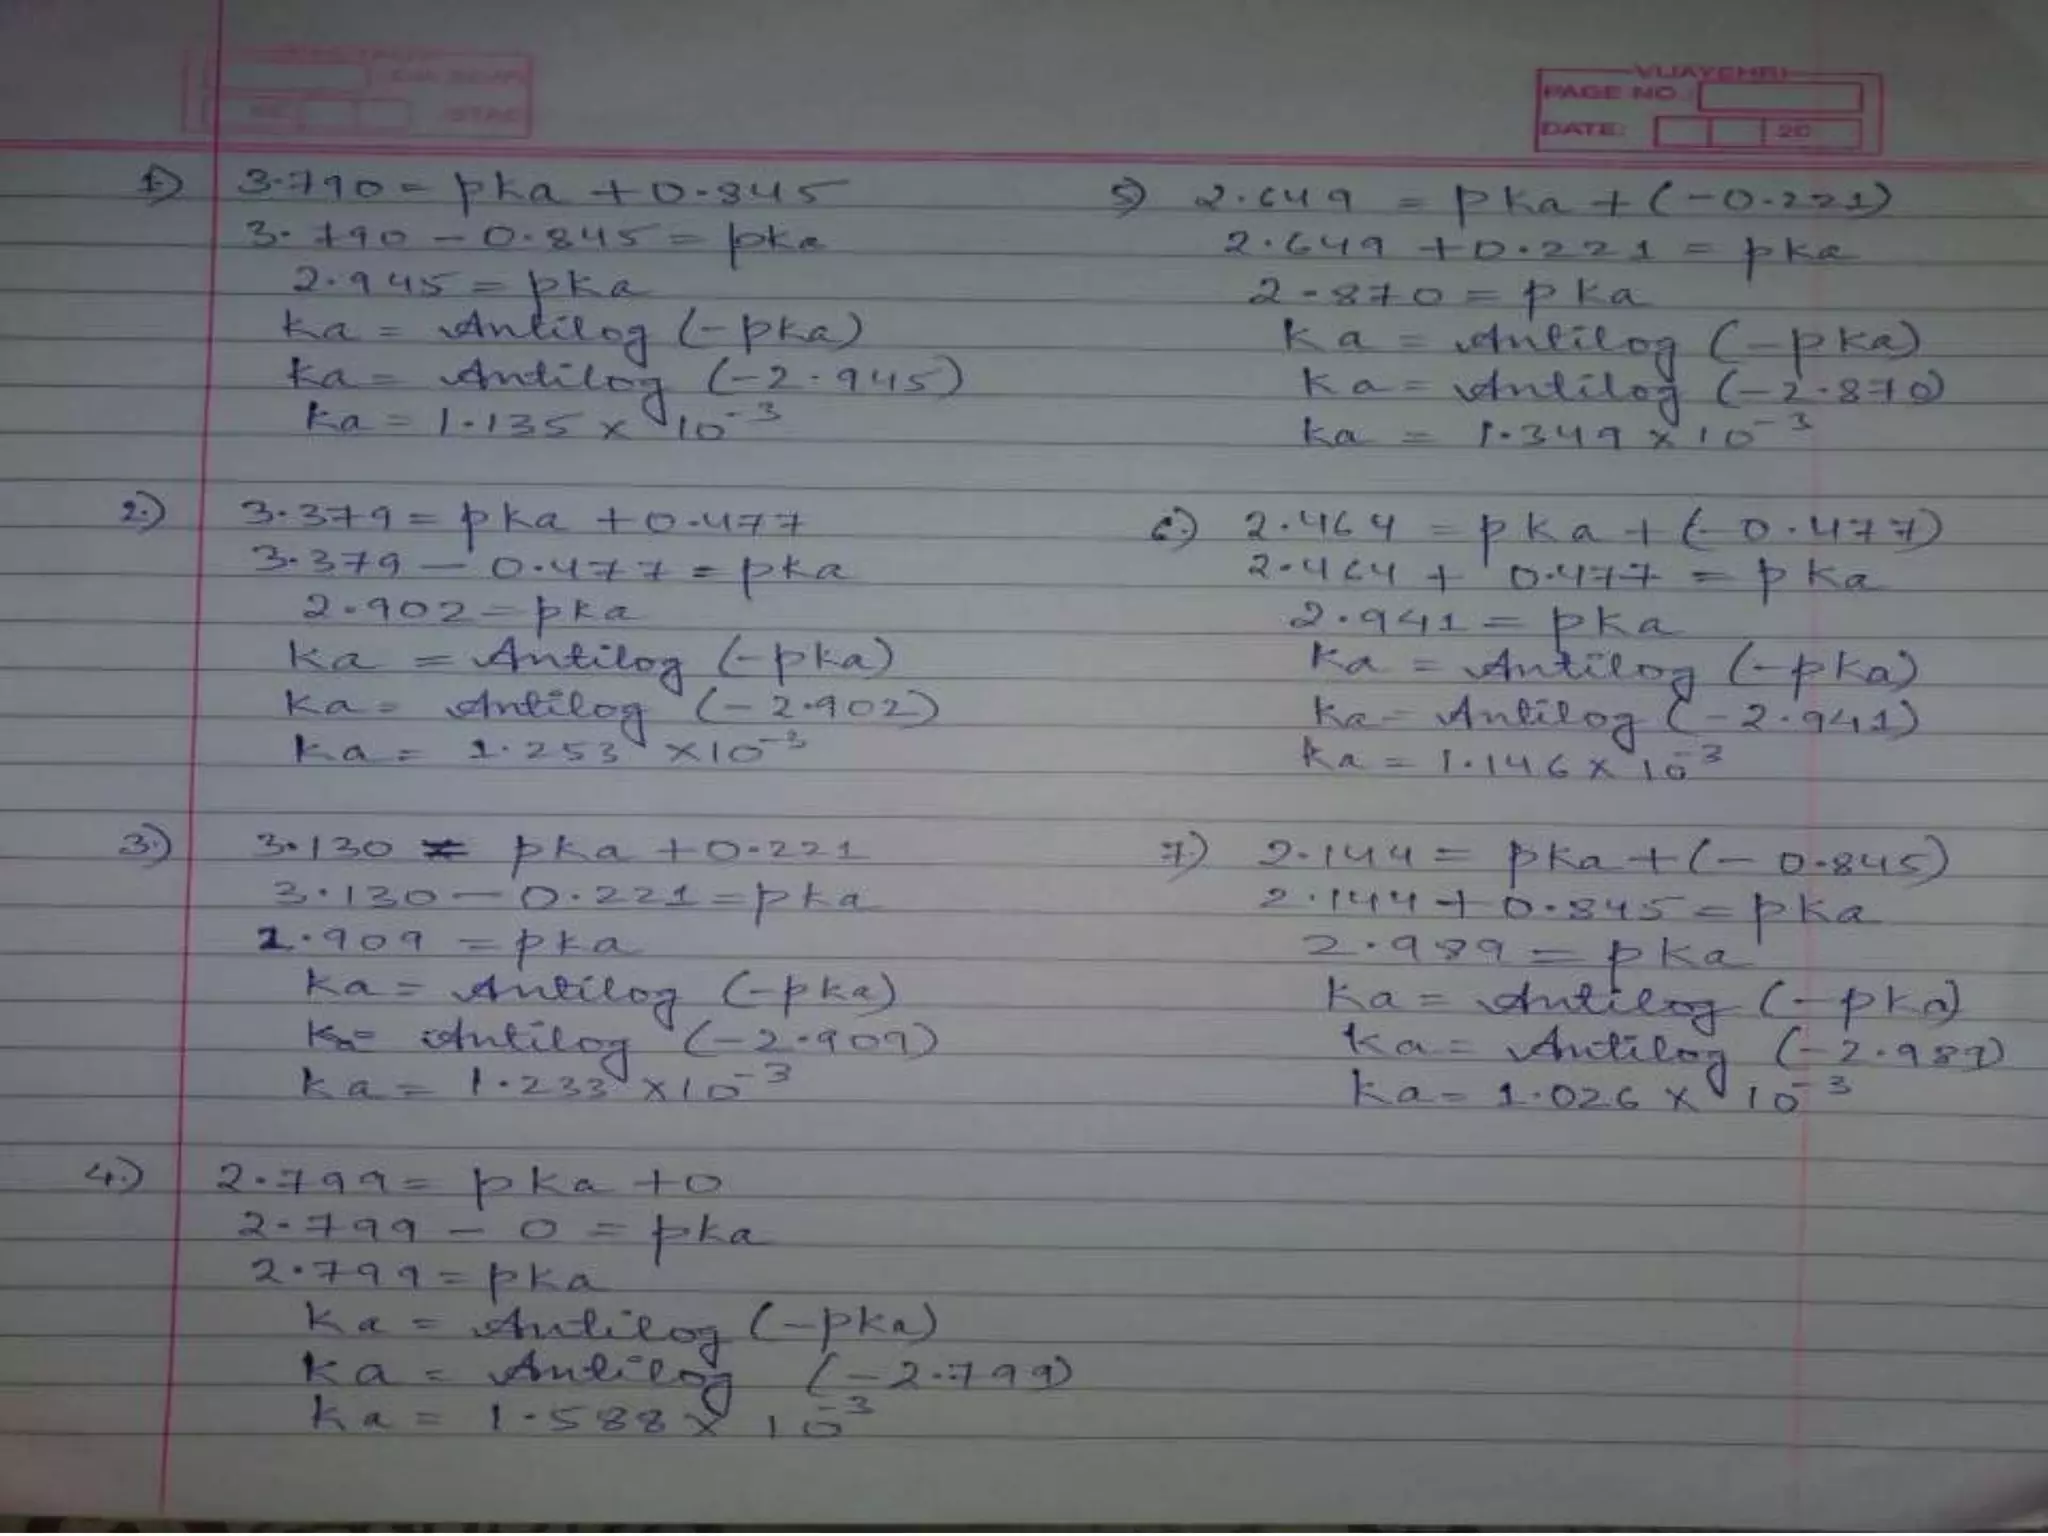 VIJAYSHRI
PAGE NO.:
DATE: 20
1.) 3.790 = pka + 0.845
3.790 - 0.845 = pka
2.945 = pka
ka = Antilog (-pka)
ka = Antilog (-2.945)
ka = 1.135 x 10⁻³
2.) 3.379 = pka + 0.477
3.379 - 0.477 = pka
2.902 = pka
ka = Antilog (-pka)
ka = Antilog (-2.902)
ka = 1.253 x 10⁻³
3.) 3.130 = pka + 0.221
3.130 - 0.221 = pka
2.909 = pka
ka = Antilog (-pka)
ka = Antilog (-2.909)
ka = 1.233 x 10⁻³
4.) 2.799 = pka + 0
2.799 - 0 = pka
2.799 = pka
ka = Antilog (-pka)
ka = Antilog (-2.799)
ka = 1.588 x 10⁻³
5) 2.649 = pka + (-0.221)
2.649 + 0.221 = pka
2.870 = pka
ka = Antilog (-pka)
ka = Antilog (-2.870)
ka = 1.349 x 10⁻³
6.) 2.464 = pka + (-0.477)
2.464 + 0.477 = pka
2.941 = pka
ka = Antilog (-pka)
ka = Antilog (-2.941)
ka = 1.146 x 10⁻³
7.) 2.144 = pka + (-0.845)
2.144 + 0.845 = pka
2.989 = pka
ka = Antilog (-pka)
ka = Antilog (-2.989)
ka = 1.026 x 10⁻³